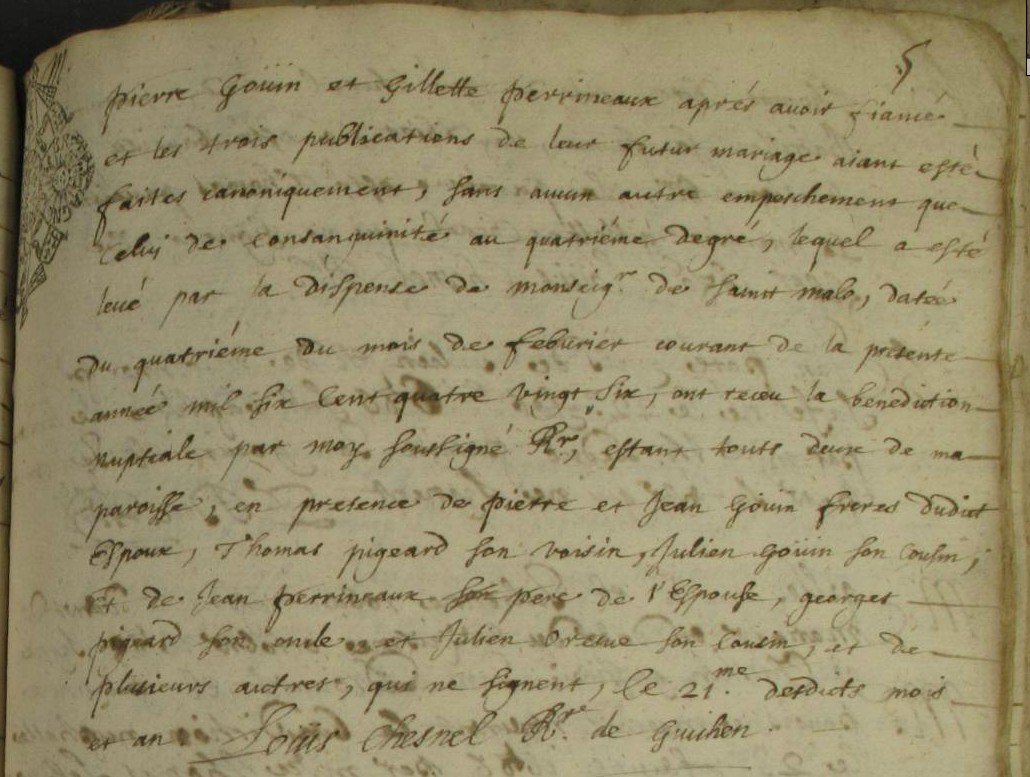 5
pierre Goüin et Gillette perrineaux aprés avoir fiancé
et les trois publications de leur futur mariage aiant esté
faites canoniquement, sans aucun autre empeschement que
celuy de consanguinité au quatriéme degré, lequel a esté
levé par la dispense de monseigr. de sainct malo, datée
du quatriéme du mois de feburier courant de la presente
année mil six cent quatre vingt six, ont receu la benediction
nuptiale par moy soussigné Rr, estant touts deux de ma
paroisse, en presence de pierre et Jean Goüin freres dudict
Espoux, Thomas pigeard son voisin, Julien Goüin son cousin,
et de Jean perrineaux pere de l'Espouse, georges
pigeard son oncle et Julien son cousin, et de
plusieurs autres, qui ne signent, le 21.me desdicts mois
et an Loüis Chesnel Rr. de Guichen.